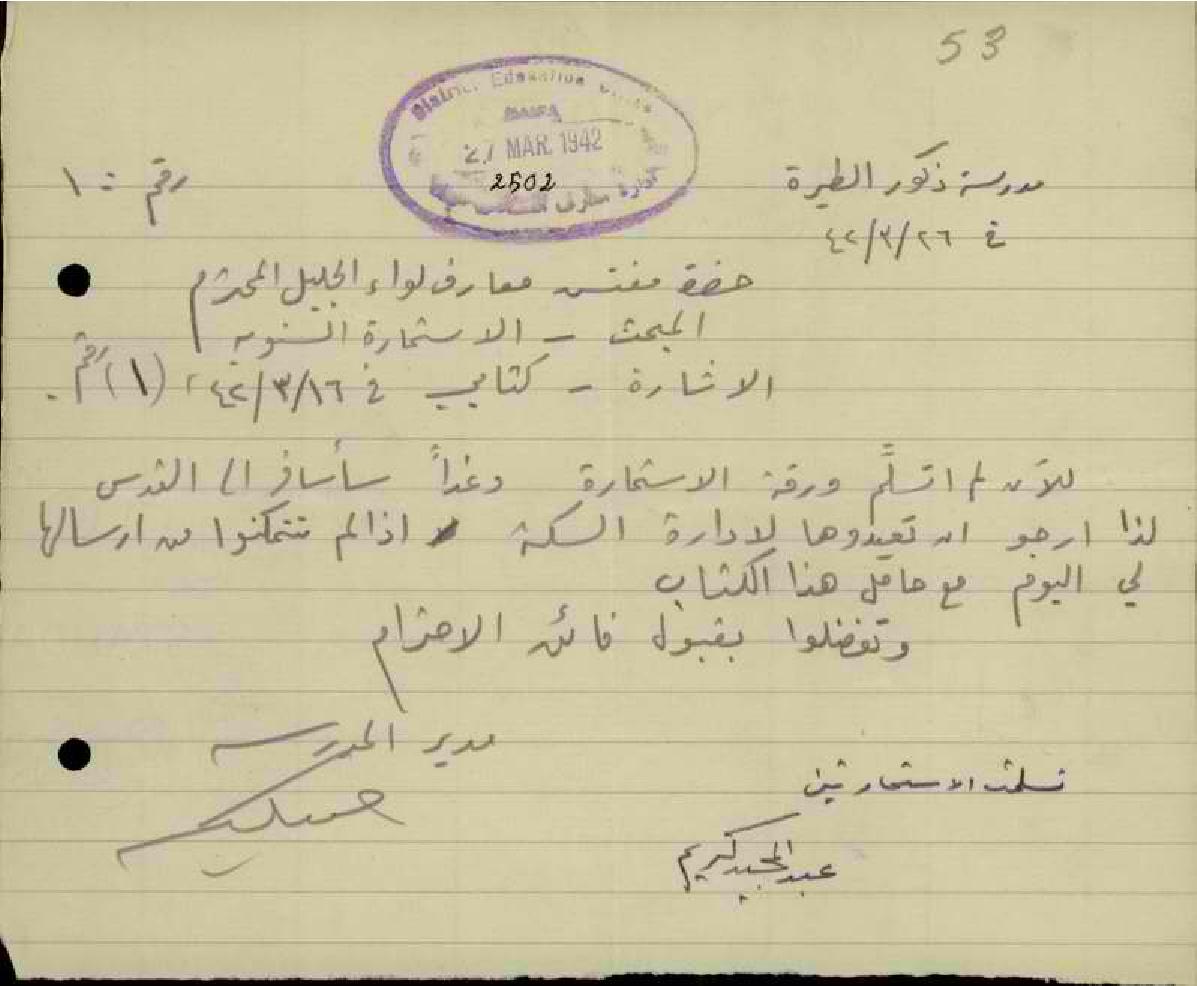 53
District Education Office
HAIFA
27 MAR. 1942
2502
ادارة معارف
مدرسة ذكور الطيرة
رقم : ١
في ٤٢/٣/٢٦
حضرة مفتش معارف لواء الجليل المحترم
المبحث – الاستمارة السنوية
الاشارة – كتابي في ٤٢/٣/١٦، رقم (١).
للآن لم اتسلَّم ورقة الاستمارة وغداً سأسافر الى القدس
لذا ارجو ان تعيدوها لادارة السكة اذا لم تتمكنوا من ارسالها
لي اليوم مع حامل هذا الكتاب
وتفضلوا بقبول فائق الاحترام
مدير المدرسة
تسلمت الاستمارتين
عبد المجيد كريم